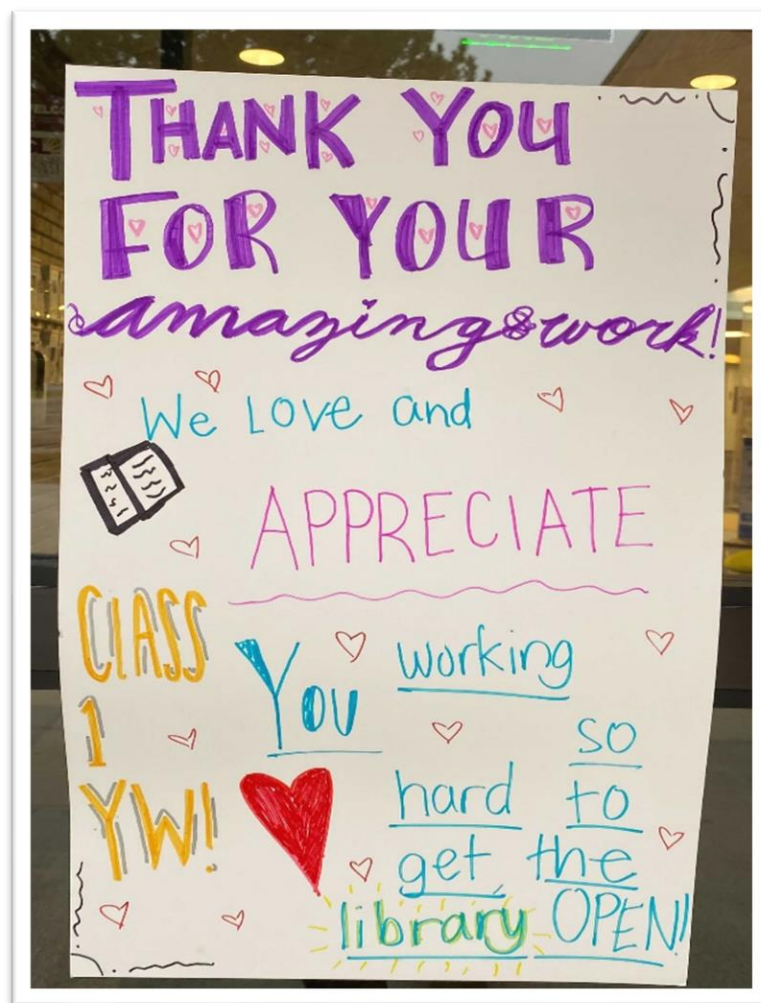 THANK YOU
FOR YOUR
amazing work!
We Love and
APPRECIATE
CLASS
1
YW!
You working
so
hard to
get the
library OPEN!